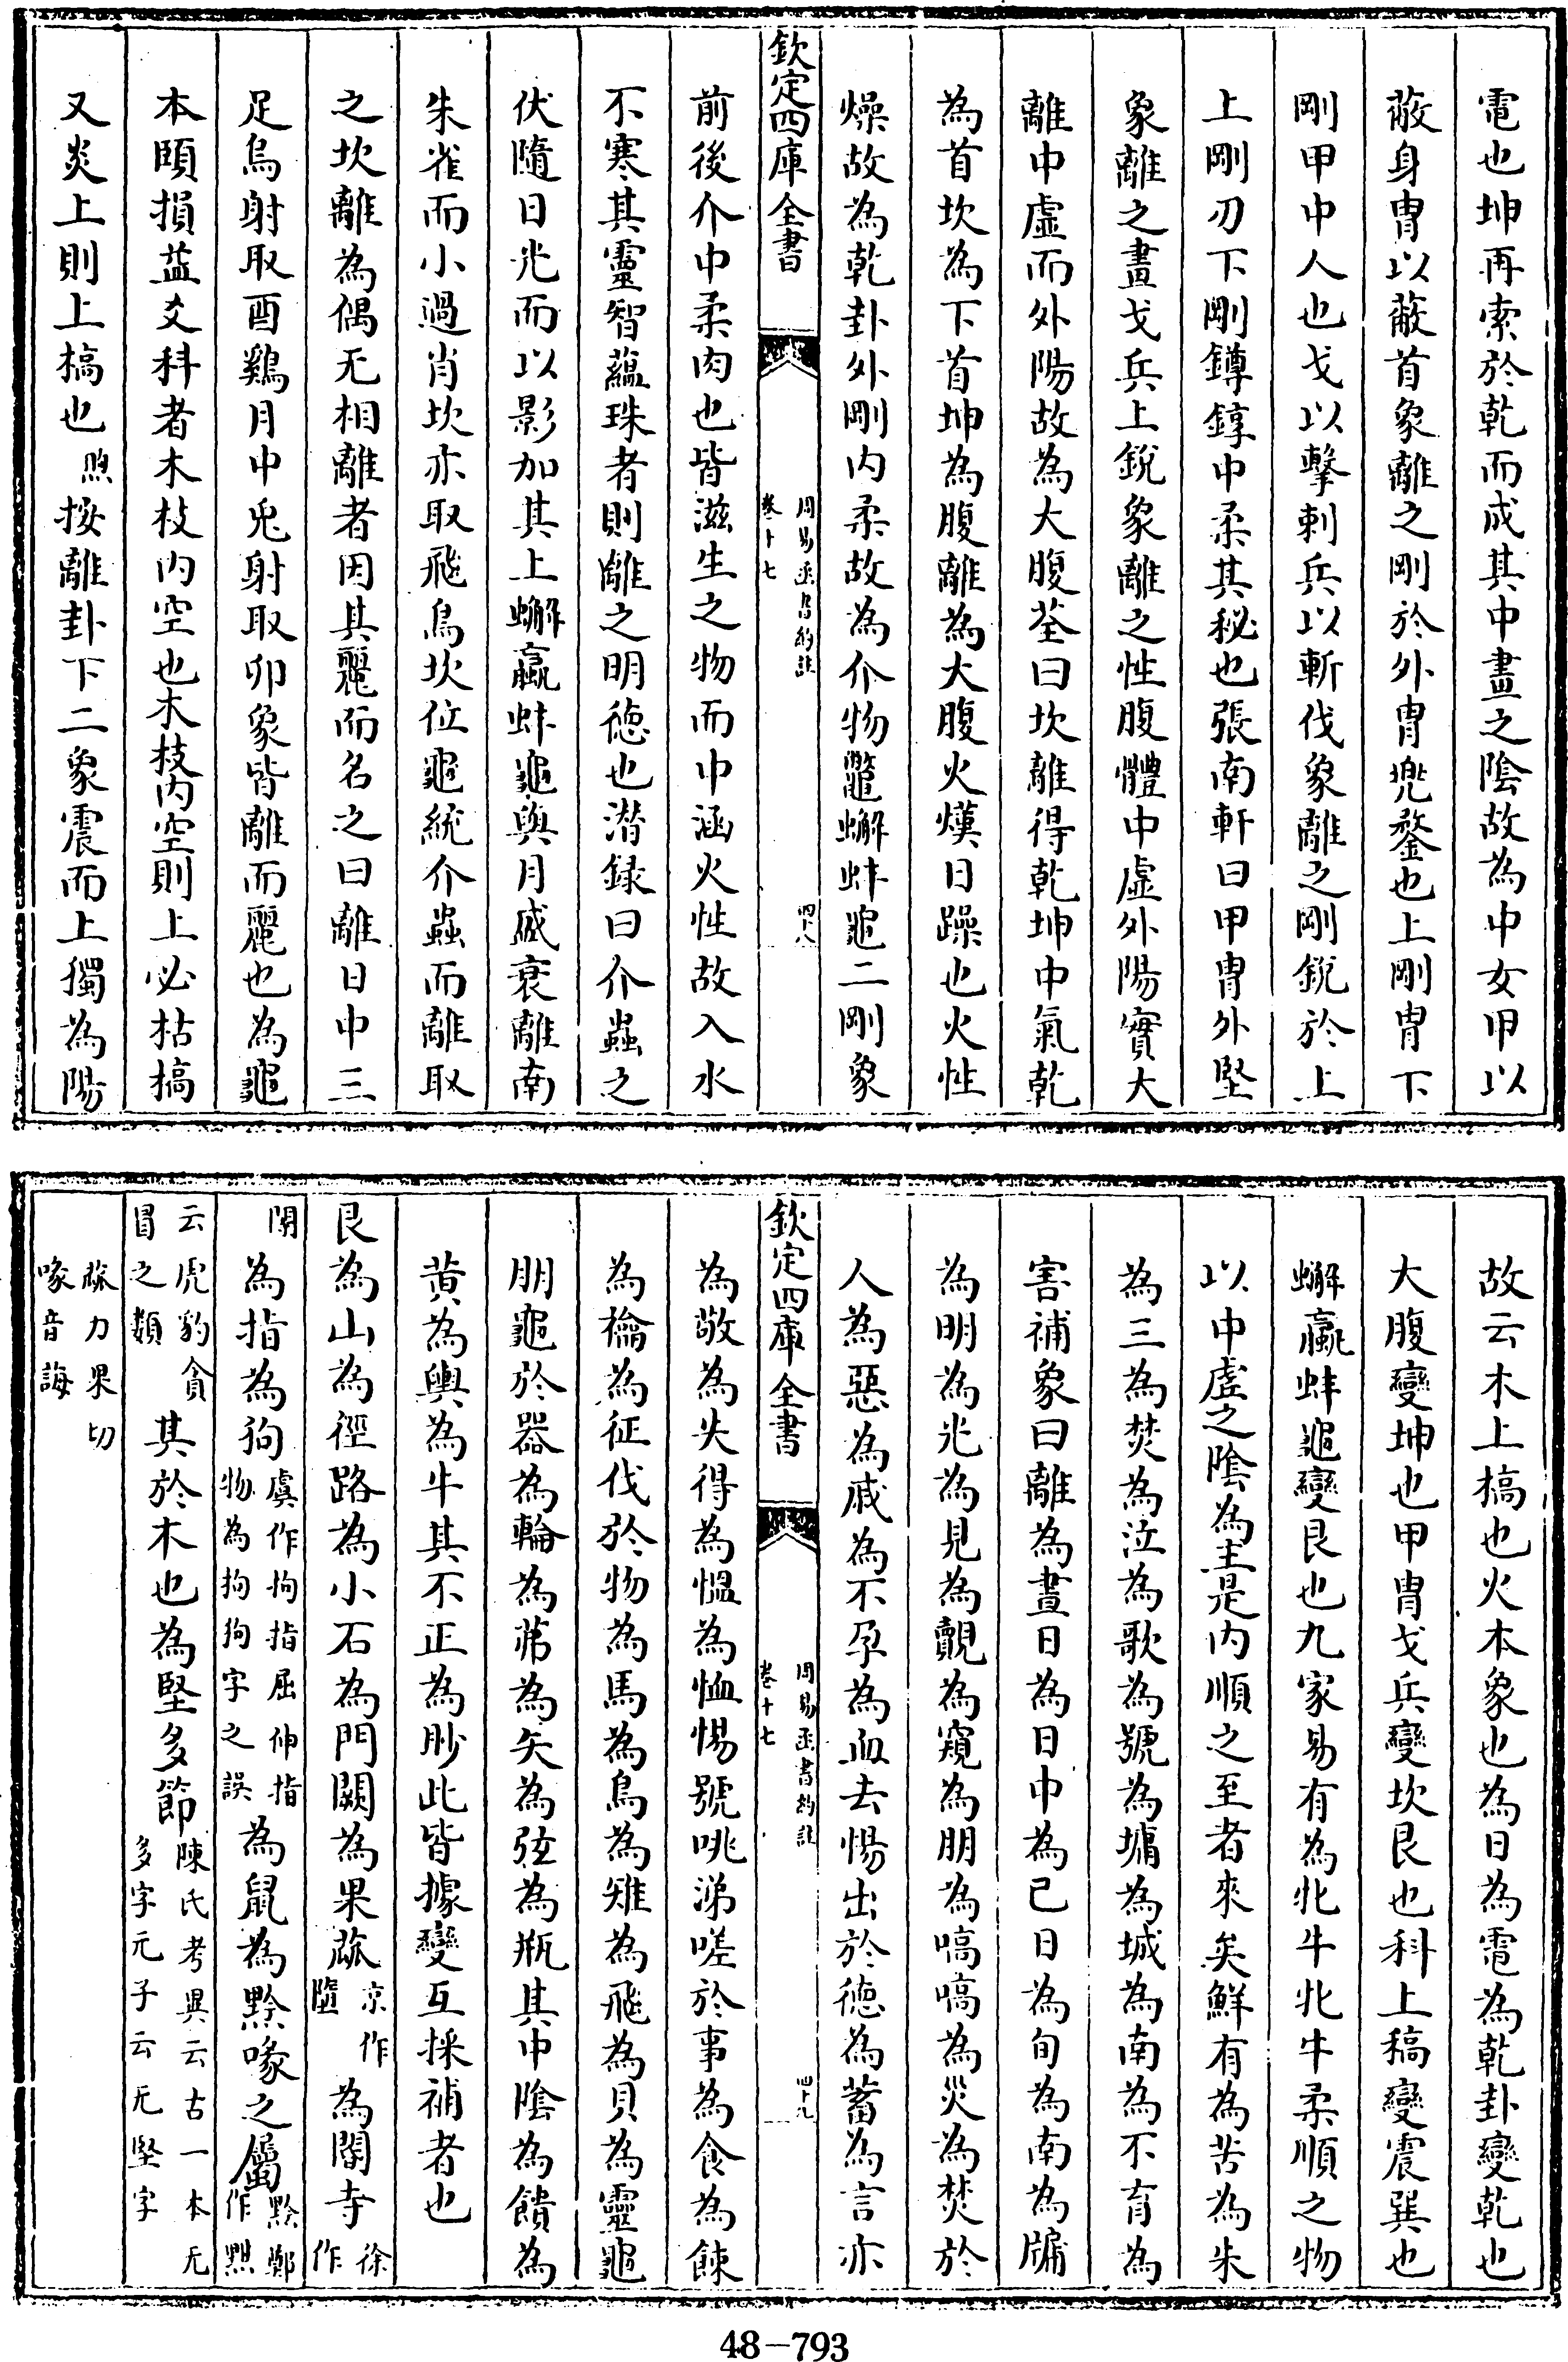 電也坤再索於乾而成其中畫之陰故為中女甲以
蔽身冑以蔽首象離之剛於外冑兜鍪也上剛冑下
剛甲中人也戈以擊刺兵以斬伐象離之剛銳於上
上剛刃下剛鐏錞中柔其秘也張南軒曰甲冑外堅
象離之畫戈兵上銳象離之性腹體中虛外陽實大
離中虛而外陽故為大腹荃曰坎離得乾坤中氣乾
為首坎為下首坤為腹離為大腹火熯日躁也火性
燥故為乾卦外剛内柔故為介物鼈蠏蚌龜二剛象
欽定四庫全書
周易函書約註
卷十七
四十八
前後介中柔肉也皆滋生之物而中涵火性故入水
不寒其靈智蘊珠者則離之明德也潜録曰介蟲之
伏隨日光而以影加其上蠏蠃蚌龜與月盛衰離南
朱雀而小過肖坎亦取飛鳥坎位龜統介蟲而離取
之坎離為偶无相離者因其麗而名之曰離日中三
足烏射取酉鷄月中兎射取卯象皆離而麗也為龜
本頤損益爻科者木枝内空也木枝内空則上必枯槁
又炎上則上槁也煦按離卦下二象震而上獨為陽
故云木上槁也火本象也為日為電為乾卦變乾也
大腹變坤也甲冑戈兵變坎艮也科上稿變震巽也
蠏蠃蚌龜變艮也九家易有為牝牛牝牛柔順之物
以中虛之陰為主是内順之至者來矣鮮有為苦為朱
為三為焚為泣為歌為號為墉為城為南為不育為
害補象曰離為晝日為日中為已日為旬為南為牖
為明為光為見為覿為窺為朋為嗃嗃為災為焚於
人為惡為戚為不孕為血去惕出於德為蓄為言亦
欽定四庫全書
周易函書約註
卷十七
四十九
為敬為失得為愠為恤惕號咷涕嗟於事為食為餗
為禴為征伐於物為馬為鳥為雉為飛為貝為靈龜
朋龜於器為輪為茀為矢為弦為瓶其中陰為饋為
黄為輿為牛其不正為眇此皆據變互採補者也
艮為山為徑路為小石為門闕為果蓏京作墮為閽寺徐作
閽為指為狗虞作拘指屈伸指物為拘狗字之誤為鼠為黔喙之屬黔鄭作黙
云虎豹貪冒之類其於木也為堅多節陳氏考異云古一本无多字元子云无堅字
蓏力果切
喙音誨
48-793